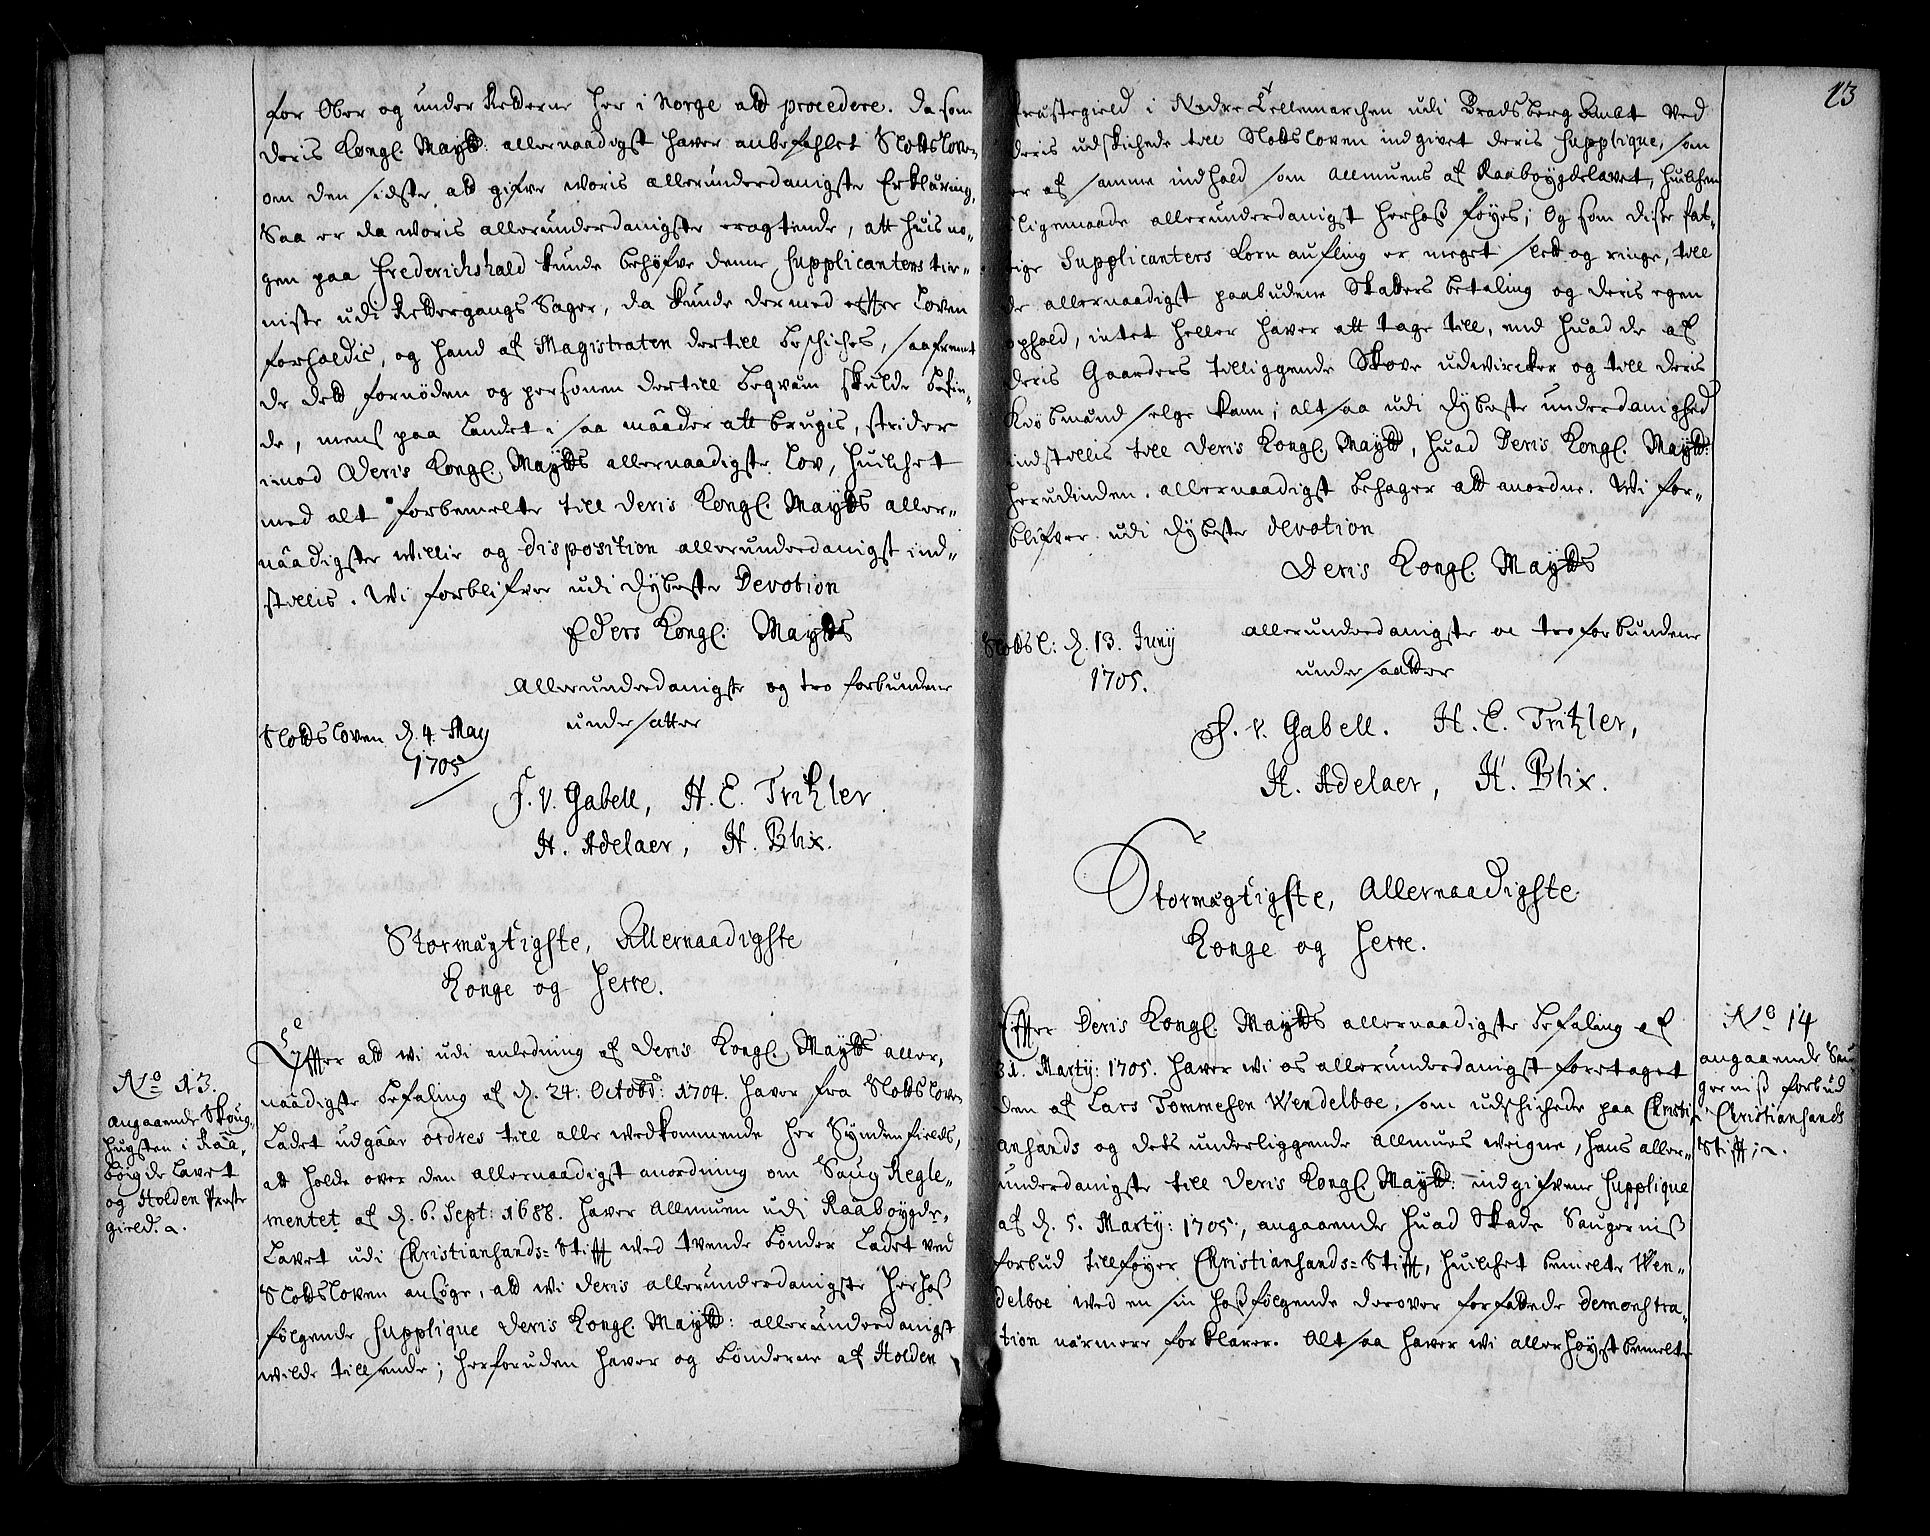 for Ober og under Retterne her i Norge att procedere. Da som
Deris Kongl. Maytt: allernaadigst haver anbefahlet Slottsloven
om den sidste att gifve woris allerunderdanigste Erklæring,
Saa er da woris allerunderdanigste eragtende, att huis no-
gen paa Frederichshald kunde behøfve denne Supplicantens tie-
niste udi Rettergangs Sager, da kunde dermed effter Loven
forholdis, og hand af Magistraten dertill beschiches, saafremt
de dett fornøden og personen dertill beqvem skulde befin-
de, mens paa Landet i saa maader att brugis, strider
imod Deris Kongl. Maytts allernaadigste Lov, huilchet
med alt forbemelte till Deris Kongl. Maytts aller-
naadigste willie og disposition allerunderdanigst ind-
stillis. Wi forblifver udi dybeste Devotion
Eders Kongl: Maytts
Allerunderdanigste og tro forbundene
undersatter
Slottsloven d. 4. May
1705
F. V. Gabell, H. E. Tritzler
H. Adelaer, H. Blix.
Stormægtigste, Allernaadigste
Konge og Herre.
No 13.
angaaende Skoug
hugsten i Raa-
bøyde lavet
og Holden Præste
gield. a.
Effter att wi udi anledning af Deris Kongl. Maytts aller-
naadigste befaling af d. 24. Octobr: 1704. haver fra Slottsloven
Ladet udgaar ordres till alle wedkommende her Syndenfields,
att holde over den allernaadigst anordning om Saug Regle-
mentet af d. 6. Sept: 1688. haver Allmuen udi Raaboygde-
Lavet udi Christianhands-Stifft wed tvende bønder Ladet ved
Slottsloven ansøge, att wi deris allerunderdanigste herhoß
følgende Supplique Deris Kongl. Maytt: allerunderdanigst
wilde tillsende; herforuden haver og bønderne af Holden
13
Præstegield i Nedre Tellemarchen udi Bradsberg Ambt Ved
deris udskichede till Slottsloven indgivet deris Supplique, som
er af samme indhold som Allmuens af Raaboygdelavet, huilchen
ligemaade allerunderdanigst herhoß føyes; Og som disse fat-
tige Supplicanters Korn aufling er meget slett og ringe, till
de allernaadigst paabudene Skatters betaling og deris egen
ophold, intet heller haver att tage till, end huad de af
deris Gaarders tilliggende Skove udwircker og till deris
Kiøbmænd selge kann; alt saa udi dybeste underdanighed
indstillis till Deris Kongl. Maytt, huad Deris Kongl. Maytt:
herudinden allernaadigst behager att anordne. Wi for-
blifver udi dybeste devotion
Deris Kongl. Maytts
allerunderdanigste oc tro forbundene
undersaatter
Slottsl: d. 13. Juny
1705.
F. V. Gabell. H. E. Tritzler,
H. Adelaer, H. Blix.
Stormægtigste, Allernaadigste
Konge og Herre.
No 14
angaaende Sau-
gerniß forbud
i Christianhands
Stifft; a.
Effter Deris Kongl. Maytts allernaadigste befaling af
31. Marty: 1705. haver wi os allerunderdanigst foretaget
den af Lars Tommesen Wendelboe, som udschichede paa Christi-
anhands og dets underliggende Allmues weigne, hans aller-
underdanigste till Deris Kongl. Maytt: indgifvene Supplique
af d. 5. Marty: 1705, angaaende huad Skade Saugerniß
forbud tillføyer Christianhands-Stifft, huilchet bemelte Wen-
delboe wed en sin hoßfølgende derover forfattede demonstra-
tion nærmere forklarer. Alt saa haver wi allerhøyst bemelte